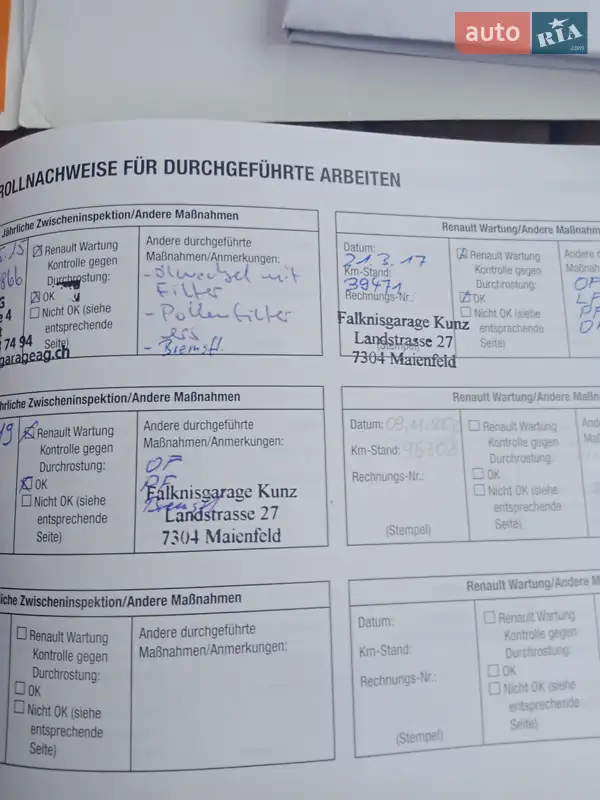 auto RIA .com
ROLLNACHWEISE FÜR DURCHGEFÜHRTE ARBEITEN
Jährliche Zwischeninspektion/Andere Maßnahmen
Renault Wartung
Kontrolle gegen
Durchrostung:
OK
Nicht OK (siehe
entsprechende
Seite)
866
e 4
74 94
garageag.ch
Andere durchgeführte
Maßnahmen/Anmerkungen:
- Ölwechsel mit
Filter
- Pollenfilter
- Bremsfl.
Renault Wartung/Andere Maßnahm
Datum:
21.3.17
Km-Stand:
39471
Rechnungs-Nr.:
Falknisgarage Kunz
Landstrasse 27
(Stempel)
7304 Maienfeld
Renault Wartung
Kontrolle gegen
Durchrostung:
OK
Nicht OK (siebe
entsprechende
Seite)
Andere d
Maßnahm
OF
LF
PF
ährliche Zwischeninspektion/Andere Maßnahmen
19
Renault Wartung
Kontrolle gegen
Durchrostung:
OK
Nicht OK (siehe
entsprechende
Seite)
Andere durchgeführte
Maßnahmen/Anmerkungen:
OF
PF
Falknisgarage Kunz
Landstrasse 27
7304 Maienfeld
Renault Wartung/Andere Maßn
Datum:
Km-Stand:
Rechnungs-Nr.:
(Stempel)
Renault Wartung
Kontrolle gegen
Durchrostung:
OK
Nicht OK (siehe
entsprechende
Seite)
liche Zwischeninspektion/Andere Maßnahmen
Renault Wartung
Kontrolle gegen
Durchrostung:
OK
Nicht OK (siehe
entsprechende
Seite)
Andere durchgeführte
Maßnahmen/Anmerkungen:
Renault Wartung/Andere M
Datum:
Km-Stand:
Rechnungs-Nr.:
(Stempel)
Renault Wartung
Kontrolle gegen
Durchrostung:
OK
Nicht OK (siehe
entsprechende
Seite)